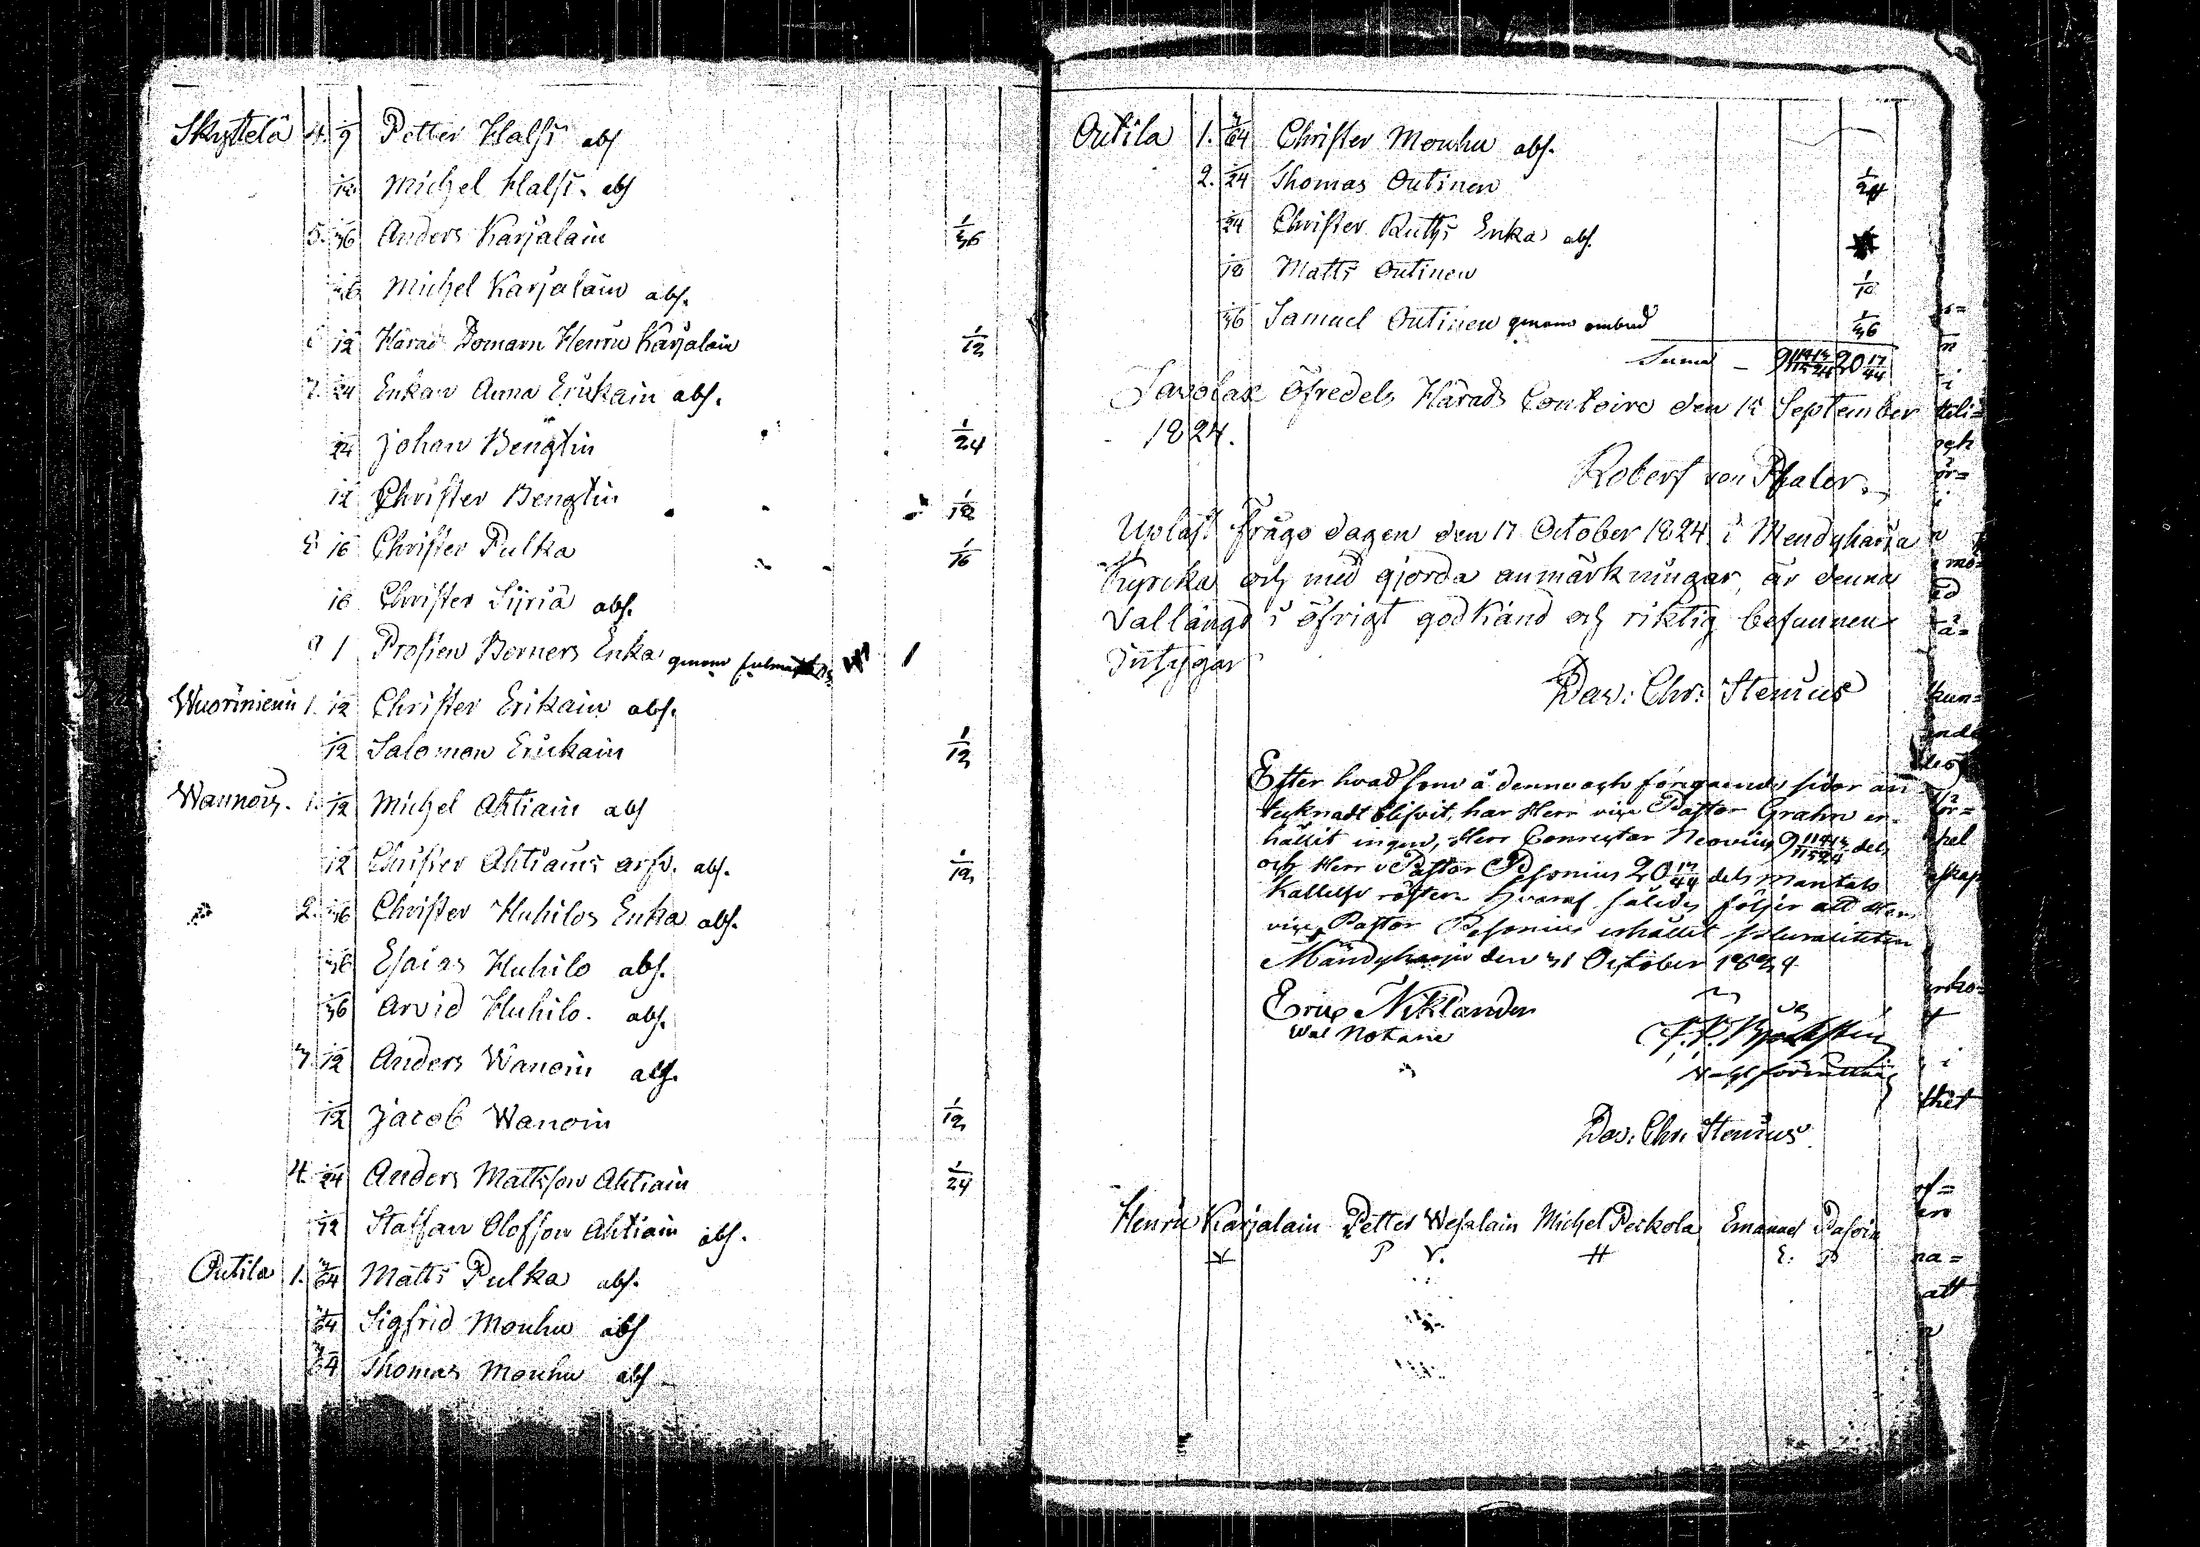 Skyttelä 4. 1/9 Petter Halsi abs
1/12 Michel Halsi. abs
5. 1/36 Anders Karjalain 1/36
1/36 Michel Karjalain abs.
1/12 Härads Domarn Henric Karjalain 1/12
7. 1/24 Enkan Anna Erickain abs.
1/24 Johan Bengtin 1/24
1/12 Christer Bengtin 1/12
8 1/16 Christer Pulka 1/16
1/16 Christer Sijriä abs.
9 1 Prosten Berners Enka genom 1
Wuoriniemi 1. 1/12 Christer Erikain abs.
1/12 Salomon Erickain 1/12
1. 1/12 Michel Ahtiain abs
1/12 Christer Ahtiains arfv. abs. 1/12
2. 1/36 Christer Huhilos Enka abs.
1/36 Esaias Huhilo abs.
1/36 Arvid Huhilo. abs.
3. 1/12 Anders Wanoin abs.
1/12 Jacob Wanoin 1/12
4. 1/24 Anders Mattsson Ahtiain 1/24
1/12 Staffan Olofsson Ahtiain abs.
Outila 1. 3/64 Matts Pulka abs.
3/64 Sigfrid Mouhu abs
3/64 Thomas Mouhu abs
Outila 1. 3/64 Christer Mouhu abs.
2. 1/24 Thomas Outinen 1/24
1/24 Christer Ruths Enka abs.
1/18 Matts Outinen 1/18
1/36 Samuel Outinen genom ombud 1/36
Suma 20 17/44
Savolax öfredels Härads Contoire den 15 September
1824.
Robert von Pfaler.
Upläst frågo dagen den 17 October 1824 i Mendyharju
Kyrcka och med gjorda anmärkningar, är denna
Vallängd i öfrigt godkänd och riktig befunnen
intygar
Dav: Chr: Stenius
Efter hvad som å denna och föregående sidor an
tecknadt blifvit, har Herr vice Pastor Grahn er-
hållit ingen, Herr Conrector Neovius dels
och Herr v Pastor Pesonius 20 17/44 dels mantals
Kallelse röster. Hvaraf således följer att Herr
vice Pastor Pesonius erhållit pluraliteten
Mändyharju den 31 October 1824
Eric Niklander
Wal Notarie
Dav: Chr: Stenius
Henric Karjalain Petter Wesalain Michel Peckola Emanuel Pasoin
P V. H E: P